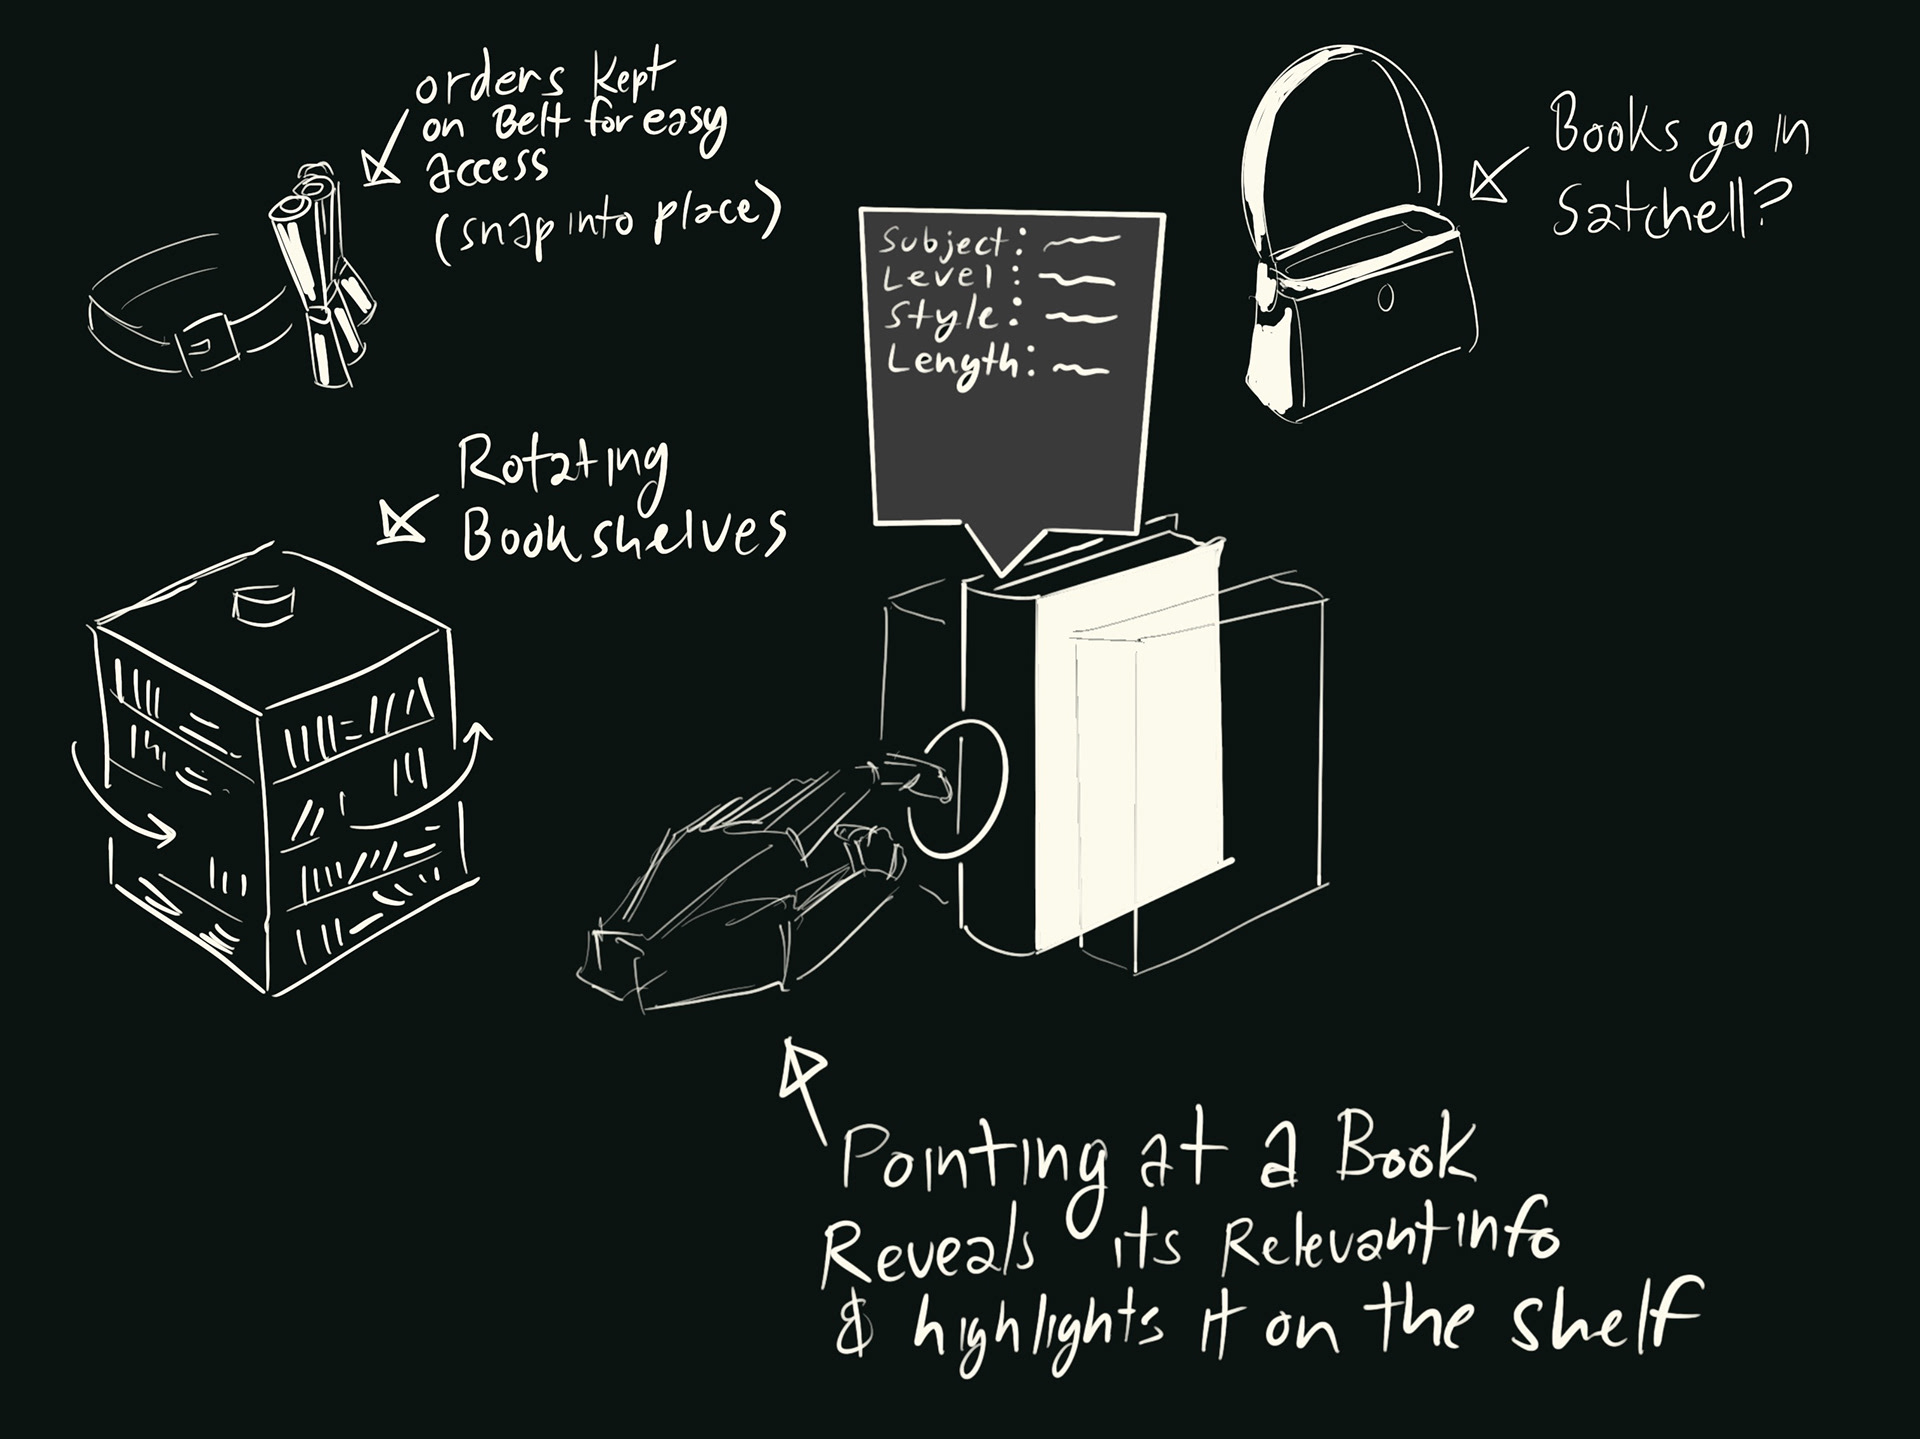 orders Kept
on Belt for easy
access
(snap into place)
Books go in
Satchell?
Subject:
Level:
Style:
Length:
Rotating
Bookshelves
Pointing at a Book
Reveals its Relevant info
& highlights it on the shelf